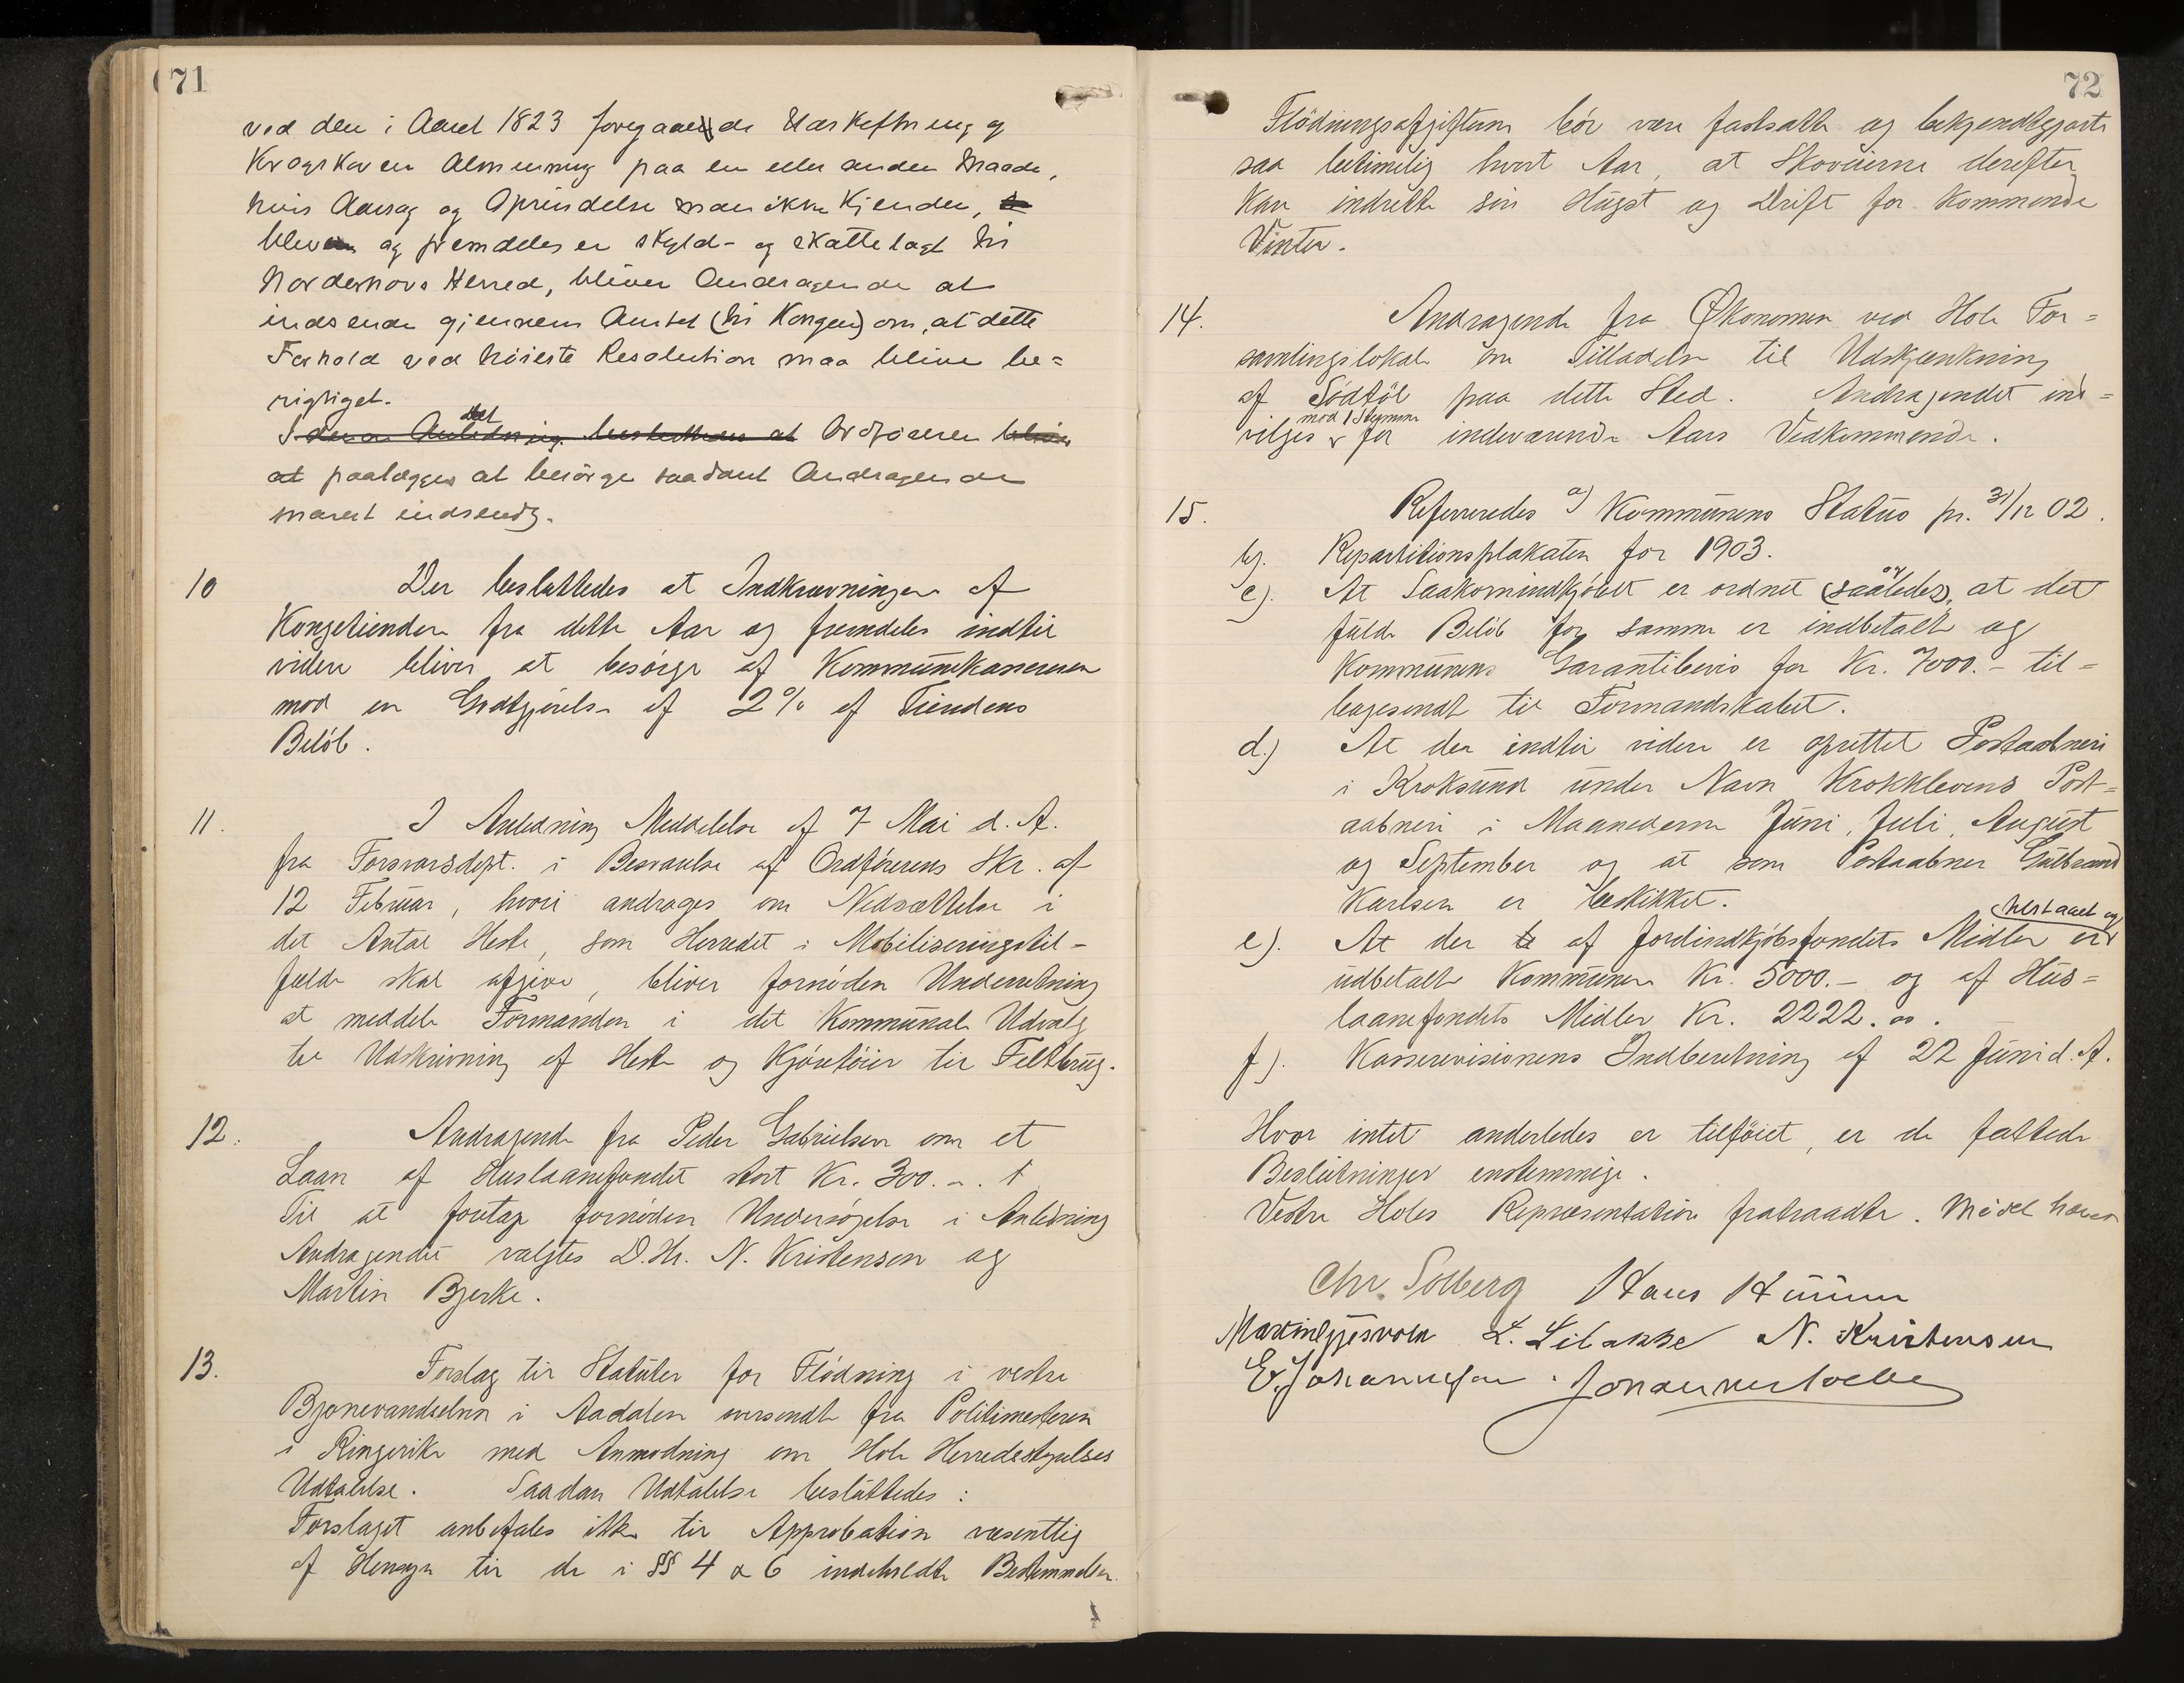 71
ved den i Aaret 1823 foregaaende Udskiftning og
Krogskoven Almenning paa en eller anden Maade,
hvis Aarsag og Oprindelse man ikke kjender,
bleven og fremdeles er skyld- og skattelagt til
Norderhovs Herred, bliver Andragende at
indsende gjennem Amtet (til Kongen) om, at dette
Forhold ved høieste Resolution maa blive be=
rigtiget.
Det
I denne Anledning besluttedes at Ordføreren bliver
at paalægges at besørge saadant Andragende
snarest indsendt.
10 Der besluttedes at Indkrævningen af
Kongetienden fra dette Aar og fremdeles indtil
videre bliver at besørge af Kommunekassereren
mod en Godtgjørelse af 2% af Tiendens
Beløb.
11. I Anledning Meddelelse af 7 Mai d. A.
fra Forsvarsdept. i Besvarelse af Ordførerens Skr. af
12 Februar, hvori andrages om Nedsættelse i
det Antal Heste, som Herredet i Mobiliseringstil-
fælde skal afgive, bliver fornøden Underretning
at meddele Formanden i det Kommunale Udvalg
til Udskrivning af Heste og Kjøretøier til Feltbrug.
12. Andragende fra Peder Gabrielsen om et
Laan af Huslaanefondet stort Kr. 300.
Til at foretage fornøden Undersøgelse i Anledning
Andragendet valgtes D.Hr. N. Kristensen og
Martin Bjerke.
13. Forslag til Statuter for Flödning i vestre
Bjonevandselven i Aadalen oversendt fra Politimesteren
i Ringerike med Anmodning om Hole Herredsstyrelses
Udtalelse. Saadan Udtalelse besluttedes:
Forslaget anbefales ikke til Approbation væsentlig
af Hensyn til de i §§ 4 & 6 indeholdte Bestemmelser.
72
Flödningsafgiften bör være fastsatte og bekjendtgjorte
saa betimelig hvert Aar, at Skoveierne derefter
kan indrette sin Hugst og Drift for kommende
Vinter.
14. Andragende fra Økonomen ved Hole For=
samlingslokale om Tilladelse til Udskjænkning
af Sødtøl paa dette Sted. Andragendet ind=
mod 1 Stemme
vilges for indeværende Aars Vedkommende.
15. Refereredes a) Kommunens Status pr. 31/12 02.
b). Repartitionsplakaten for 1903.
c). At Saakornindkjøbet er ordnet (saaledes), at det
og
fulde Beløb for samme er indbetalt og
Kommunens Garantibevis for Kr. 7000.- til=
bagesendt til Formandskabet.
d.) At der indtil videre er oprettet Postaabneri
i Kroksund under Navn Krokklevens Post=
aabneri i Maanederne Juni, Juli, August
og September og at som Postaabner Gulbrand
Karlsen er beskikket.
tilstaaet og
e). At der af Jordindkjøbsfondets Midler er
udbetalt Kommunen Kr. 5000.- og af Hus=
laanefondets Midler Kr. 2222.00.
f). Kasserevisionens Indberetning af 22 Juni d. A.
Hvor intet anderledes er tilføiet, er de fattede
Beslutninger enstemmige.
Vestre Holes Repræsentation fratraadte. Mødet hævet
Chr. Solberg Hans
Martin Gjesvold L. Libakke N. Kristensen
E. Johannesen.